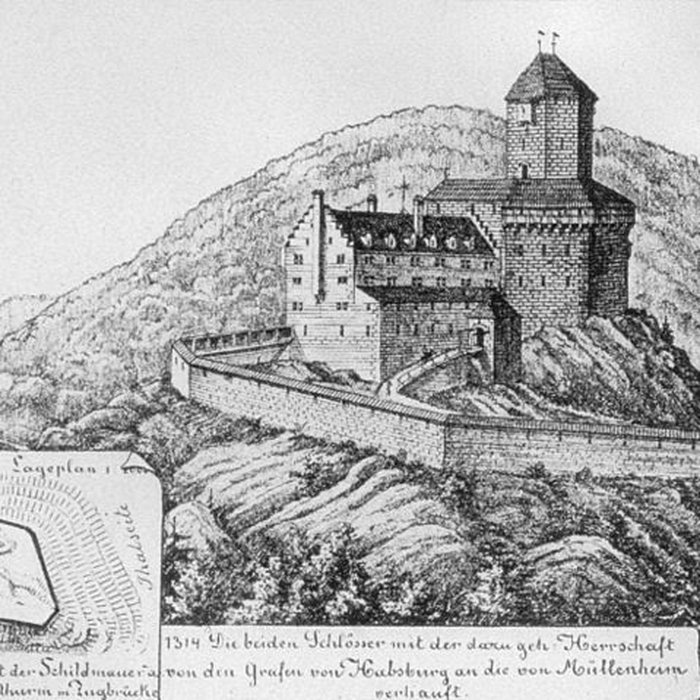 Lageplan 1
Thalseite
t der Schildmauer a.
Thurm m Zugbrücke
1314 Die beiden Schlösser mit der dazu geh: Herrschaft
von den Grafen von Habsburg an die von Müllenheim
verkauft.